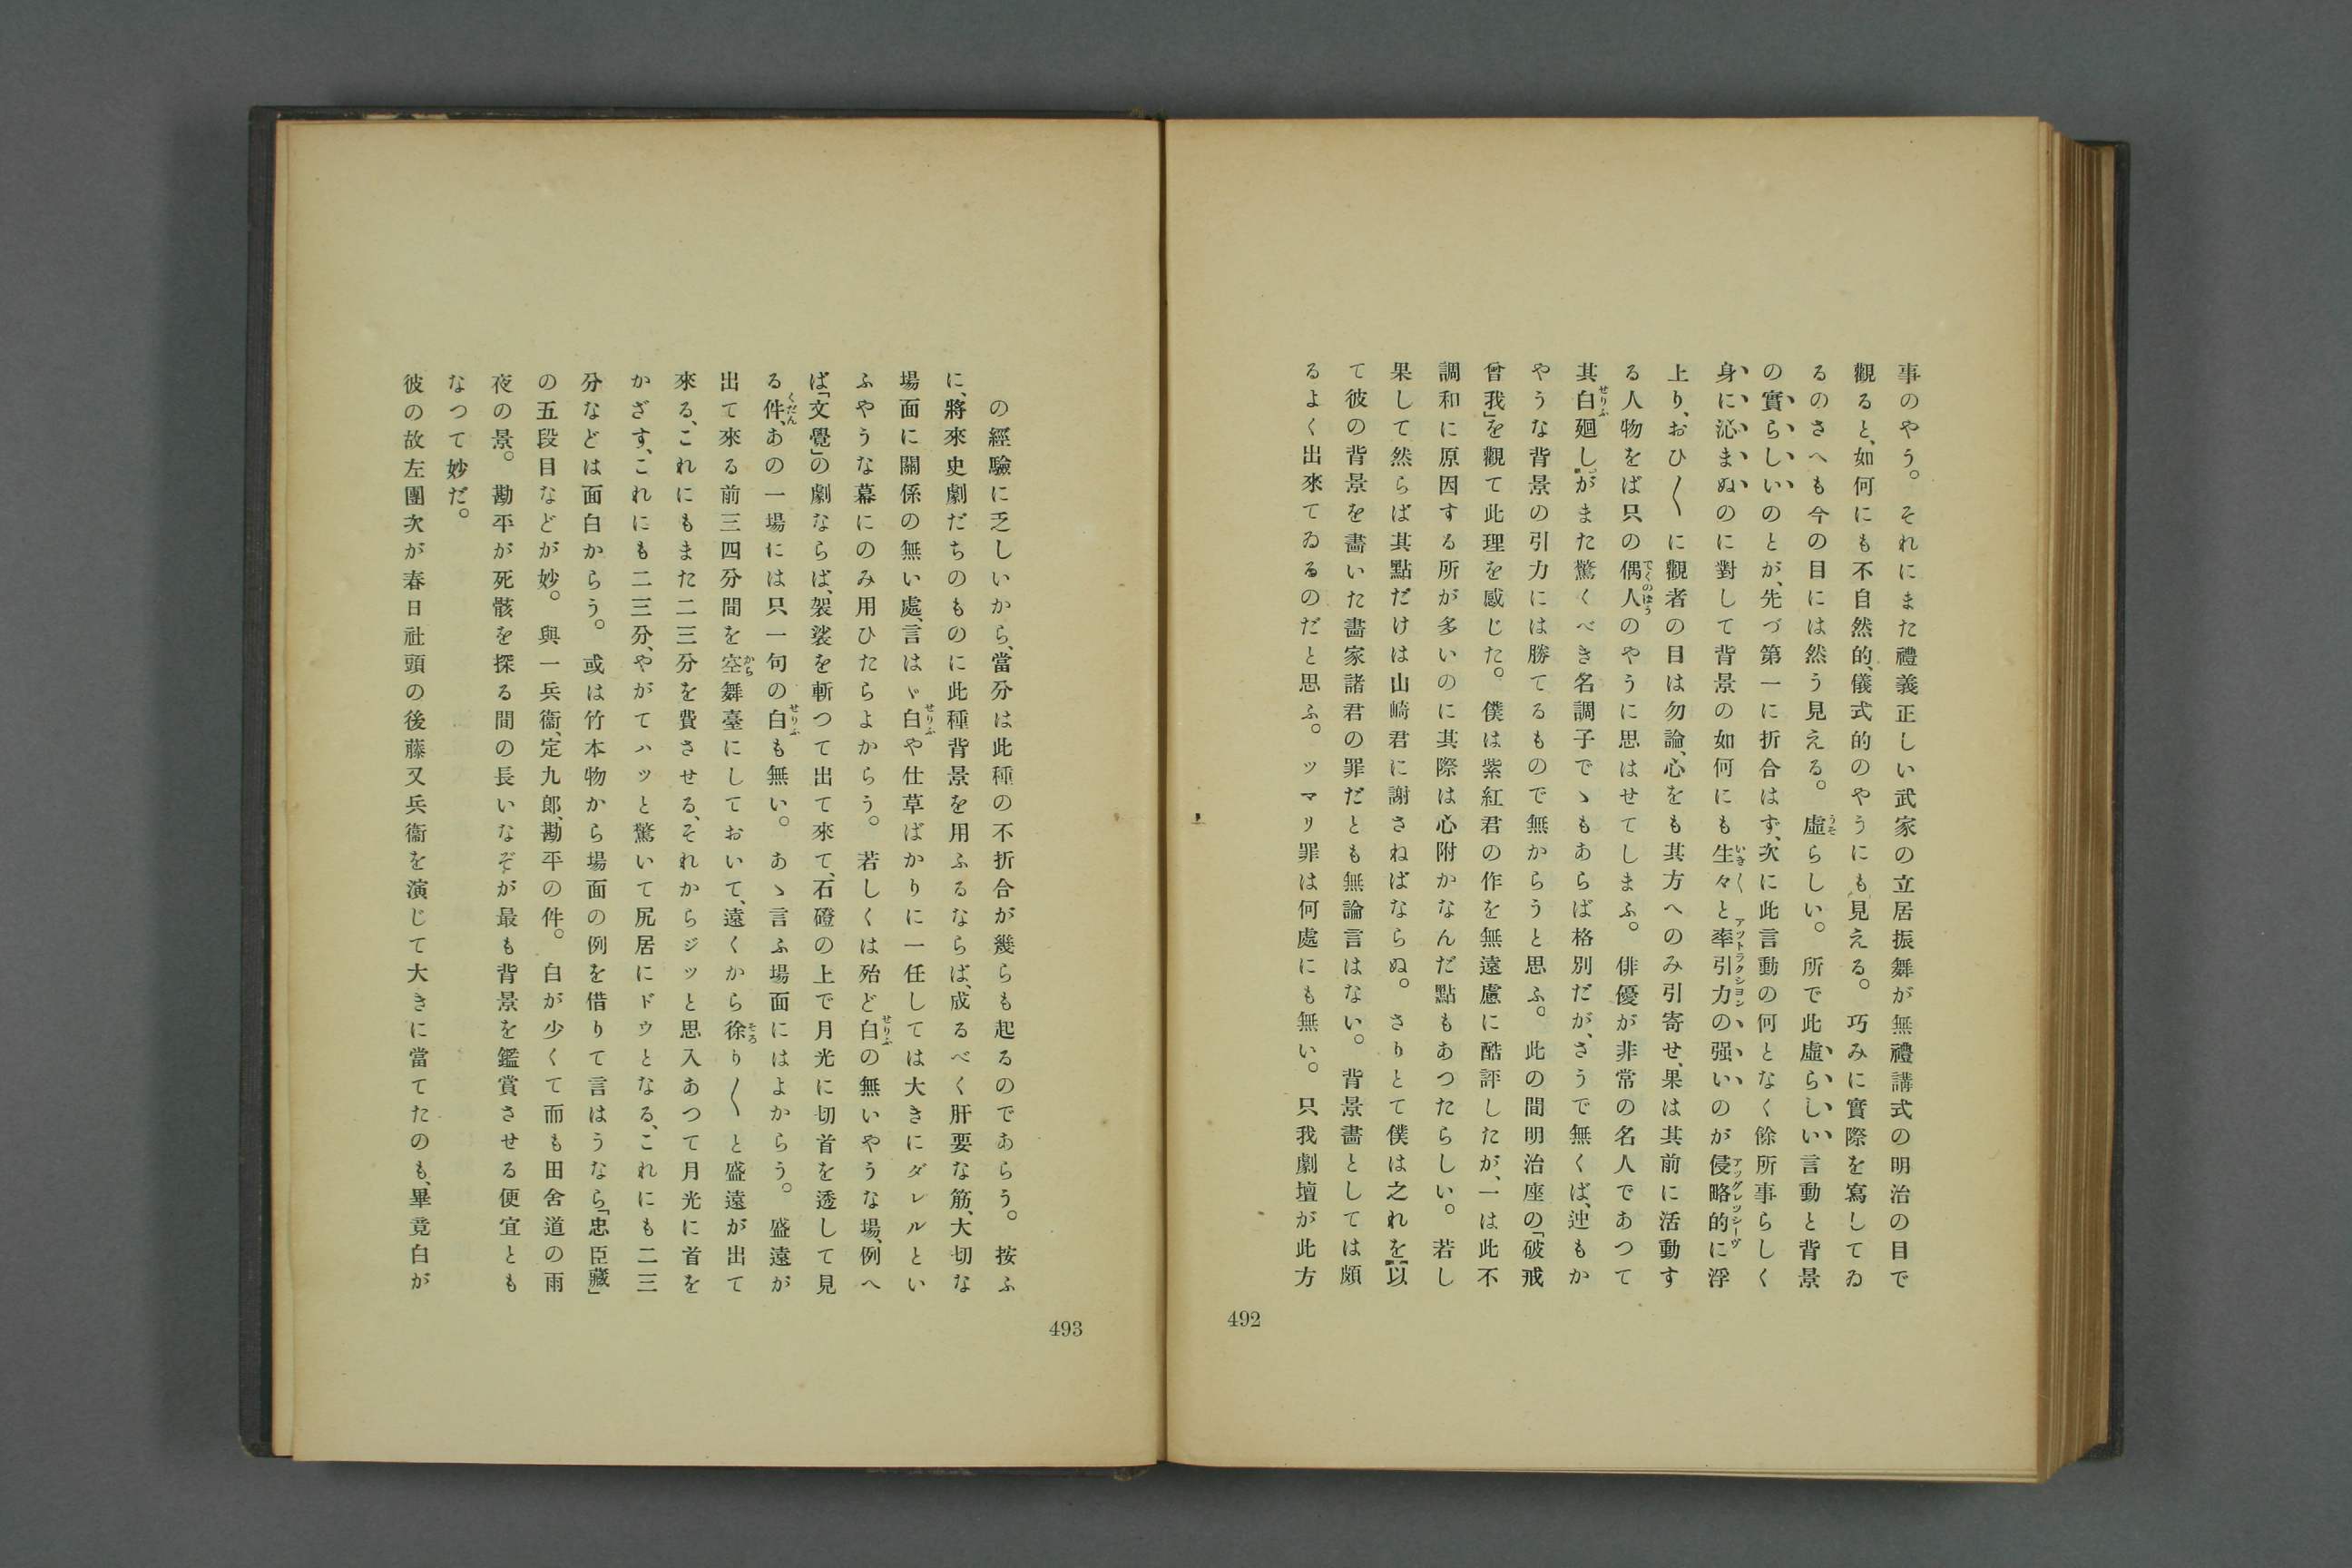 事のやう。それにまた禮義正しい武家の立居振舞が無禮講式の明治の目で
觀ると、如何にも不自然的、儀式的のやうにも見える。巧みに實際を寫してゐ
るのさへも今の目には然う見える。虛らしい。所で此虛らしい言動と背景
の實らしいのとが、先づ第一に折合はず、次に此言動の何となく餘所事らしく
身に沁まぬのに對して背景の如何にも生々と牽引力の强いのが侵略的に浮
上り、おひ〳〵に觀者の目は勿論、心をも其方へのみ引寄せ、果は其前に活動す
る人物をば只の偶人のやうに思はせてしまふ。俳優が非常の名人であつて
其白廻しがまた驚くべき名調子でゝもあらば格別だが、さうで無くば、迚もか
やうな背景の引力には勝てるもので無からうと思ふ。此の間明治座の「破戒
曾我」を觀て此理を感じた。僕は紫紅君の作を無遠慮に酷評したが、一は此不
調和に原因する所が多いのに其際は心附かなんだ點もあつたらしい。若し
果して然らば其點だけは山崎君に謝さねばならぬ。さりとて僕は之れを以
て彼の背景を畵いた畵家諸君の罪だとも無論言はない。背景畵としては頗
るよく出來てゐるのだと思ふ。ツマリ罪は何處にも無い。只我劇壇が此方
492
の經驗に乏しいから、當分は此種の不折合が幾らも起るのであらう。按ふ
に、將來史劇だちのものに此種背景を用ふるならば、成るべく肝要な筋、大切な
場面に關係の無い處、言はゞ白や仕草ばかりに一任しては大きにダレルとい
ふやうな幕にのみ用ひたらよからう。若しくは殆ど白の無いやうな場、例へ
ば「文覺」の劇ならば、袈裟を斬つて出て來て、石磴の上で月光に切首を透して見
る件、あの一場には只一句の白も無い。あゝ言ふ場面にはよからう。盛遠が
出て來る前三四分間を空舞臺にしておいて、遠くから徐り〳〵と盛遠が出て
來る、これにもまた二三分を費させる、それからジッと思入あつて月光に首を
かざす、これにも二三分、やがてハッと驚いて尻居にドウとなる、これにも二三
分などは面白からう。或は竹本物から場面の例を借りて言はうなら「忠臣藏」
の五段目などが妙。與一兵衞、定九郎、勘平の件。白が少くて而も田舍道の雨
夜の景。勘平が死骸を探る間の長いなぞが最も背景を鑑賞させる便宜とも
なつて妙だ。
彼の故左團次が春日社頭の後藤又兵衞を演じて大きに當てたのも、畢竟白が
493